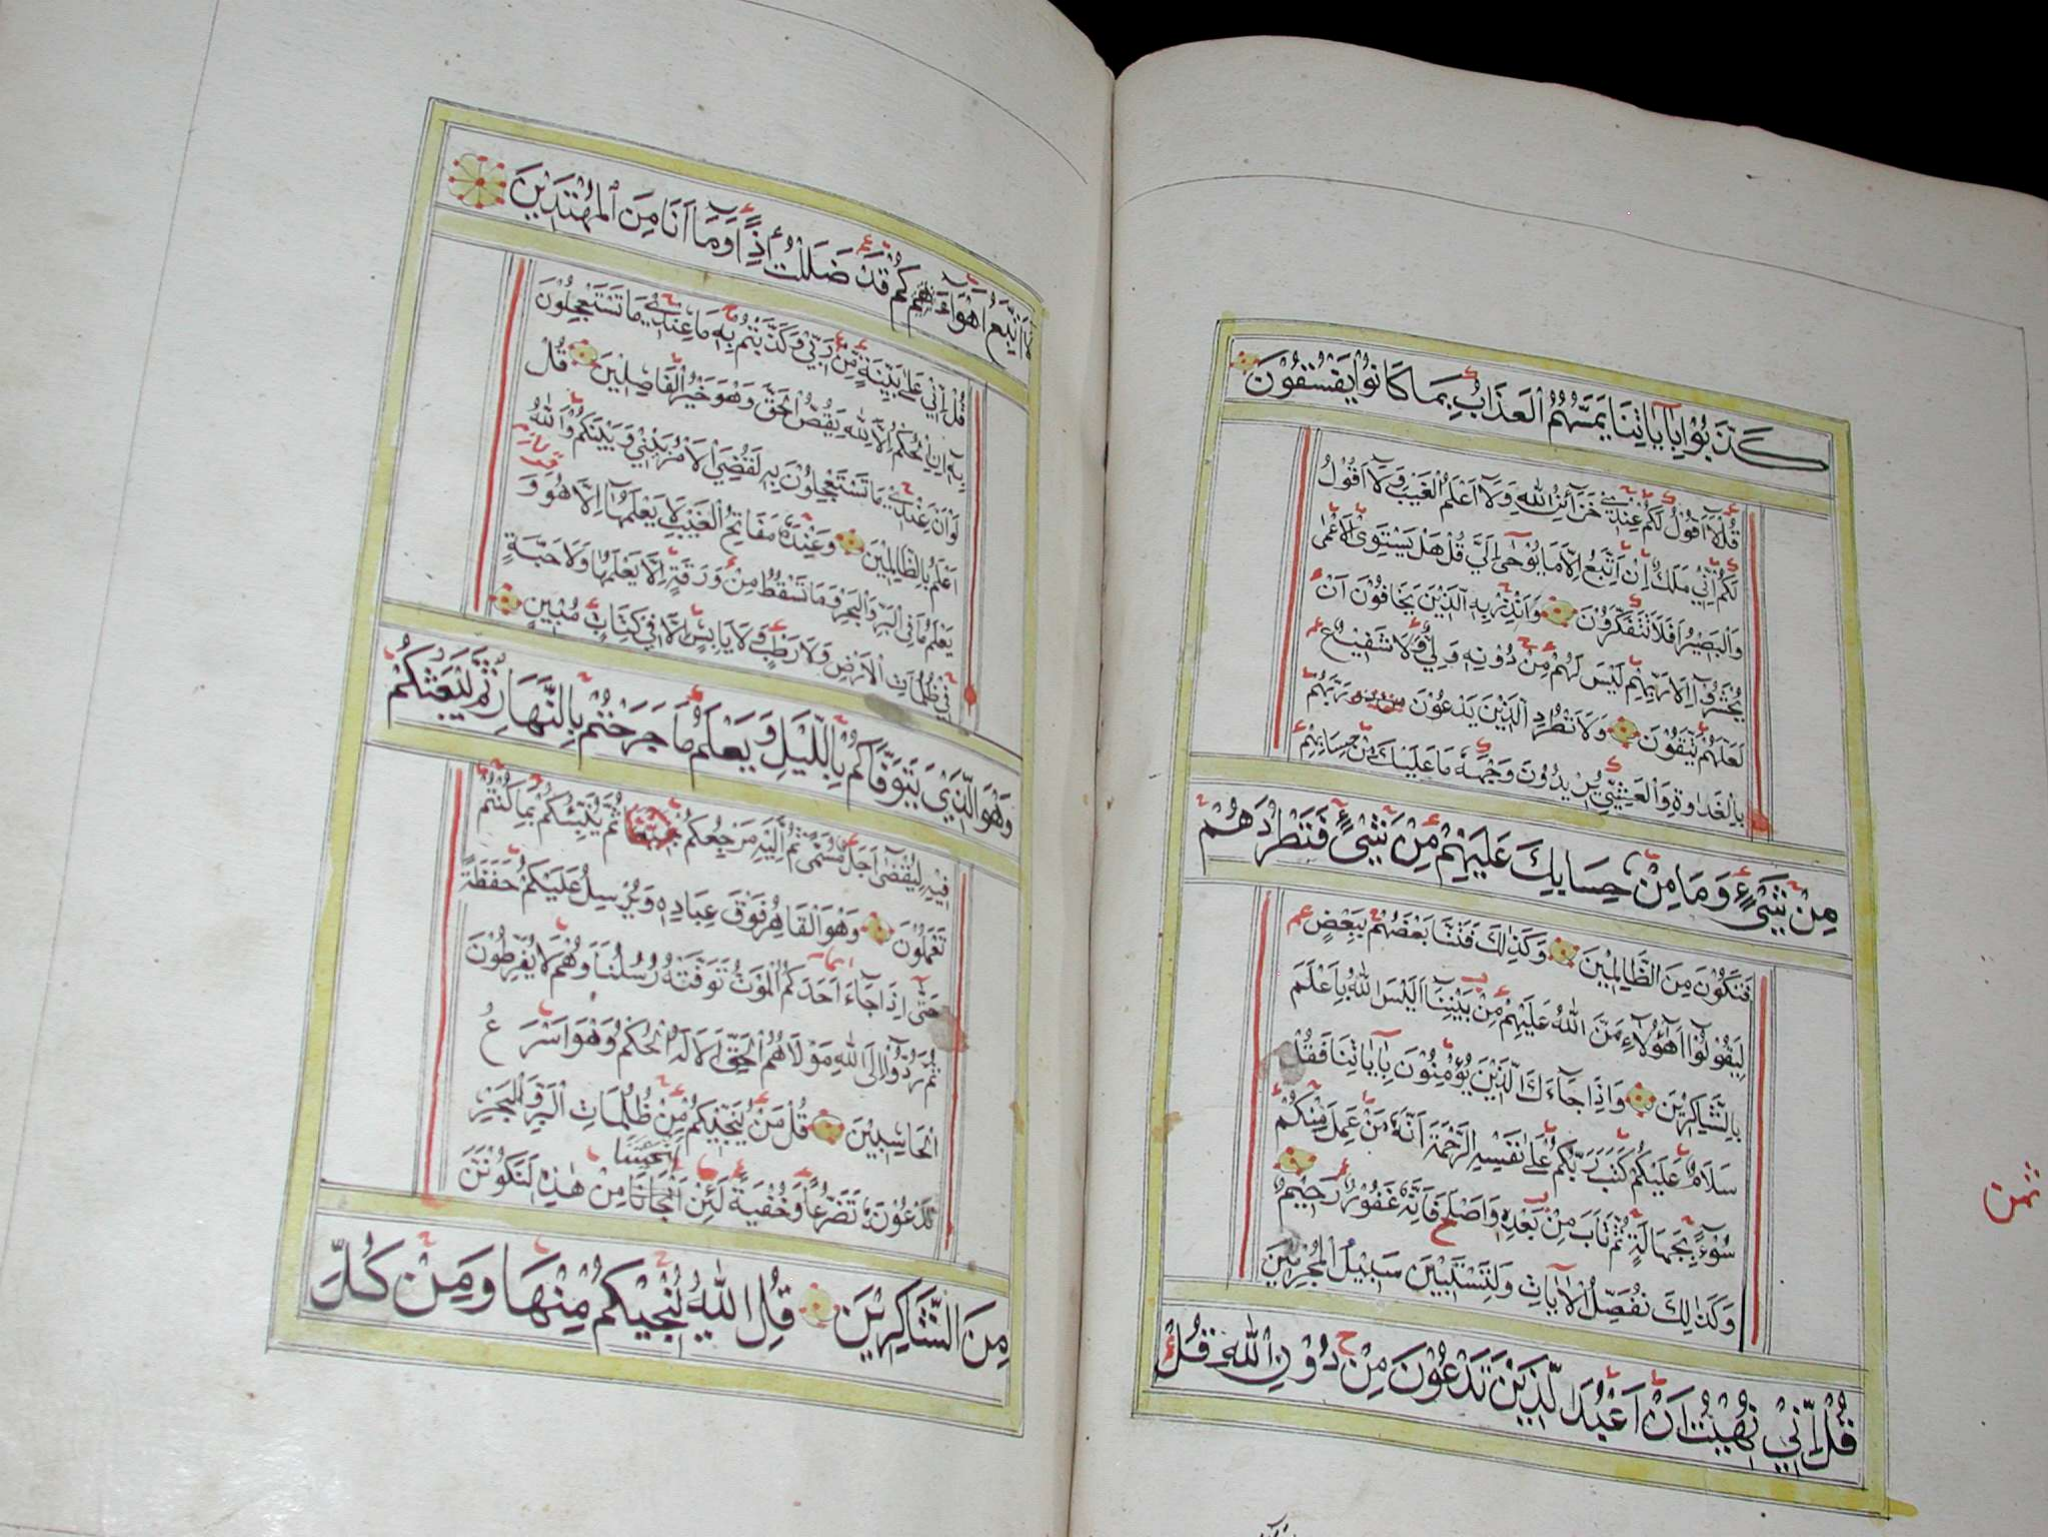 كَذَّبُوْا بِاٰيَاتِنَا يَمَسُّهُمُ الْعَذَابُ بِمَا كَانُوْا يَفْسُقُوْنَ
قُلْ لَآ اَقُوْلُ لَكُمْ عِنْدِيْ خَزَآئِنُ اللّٰهِ وَلَآ اَعْلَمُ الْغَيْبَ وَلَآ اَقُوْلُ
لَكُمْ اِنِّيْ مَلَكٌ اِنْ اَتَّبِعُ اِلَّا مَا يُوْحٰى اِلَيَّ قُلْ هَلْ يَسْتَوِى الْاَعْمٰى
وَالْبَصِيْرُ اَفَلَا تَتَفَكَّرُوْنَ وَاَنْذِرْ بِهِ الَّذِيْنَ يَخَافُوْنَ اَنْ
يُحْشَرُوْآ اِلٰى رَبِّهِمْ لَيْسَ لَهُمْ مِنْ دُوْنِهٖ وَلِيٌّ وَلَا شَفِيْعٌ
لَعَلَّهُمْ يَتَّقُوْنَ وَلَا تَطْرُدِ الَّذِيْنَ يَدْعُوْنَ رَبَّهُمْ
بِالْغَدٰوةِ وَالْعَشِيِّ يُرِيْدُوْنَ وَجْهَهٗ مَا عَلَيْكَ مِنْ حِسَابِهِمْ
مِنْ شَيْءٍ وَمَا مِنْ حِسَابِكَ عَلَيْهِمْ مِنْ شَيْءٍ فَتَطْرُدَهُمْ
فَتَكُوْنَ مِنَ الظَّالِمِيْنَ وَكَذٰلِكَ فَتَنَّا بَعْضَهُمْ بِبَعْضٍ
لِيَقُوْلُوْآ اَهٰٓؤُلَآءِ مَنَّ اللّٰهُ عَلَيْهِمْ مِنْ بَيْنِنَا اَلَيْسَ اللّٰهُ بِاَعْلَمَ
بِالشَّاكِرِيْنَ وَاِذَا جَآءَكَ الَّذِيْنَ يُؤْمِنُوْنَ بِاٰيَاتِنَا فَقُلْ
سَلَامٌ عَلَيْكُمْ كَتَبَ رَبُّكُمْ عَلٰى نَفْسِهِ الرَّحْمَةَ اَنَّهٗ مَنْ عَمِلَ مِنْكُمْ
سُوْءً بِجَهَالَةٍ ثُمَّ تَابَ مِنْ بَعْدِهٖ وَاَصْلَحَ فَاِنَّهٗ غَفُوْرٌ رَحِيْمٌ
وَكَذٰلِكَ نُفَصِّلُ الْاٰيَاتِ وَلِتَسْتَبِيْنَ سَبِيْلُ الْمُجْرِمِيْنَ
قُلْ اِنِّيْ نُهِيْتُ اَنْ اَعْبُدَ الَّذِيْنَ تَدْعُوْنَ مِنْ دُوْنِ اللّٰهِ قُلْ
ثمن
لَآ اَتَّبِعُ اَهْوَآءَكُمْ قَدْ ضَلَلْتُ اِذًا وَمَآ اَنَا مِنَ الْمُهْتَدِيْنَ
قُلْ اِنِّيْ عَلٰى بَيِّنَةٍ مِنْ رَبِّيْ وَكَذَّبْتُمْ بِهٖ مَا عِنْدِيْ مَا تَسْتَعْجِلُوْنَ
بِهٖ اِنِ الْحُكْمُ اِلَّا لِلّٰهِ يَقُصُّ الْحَقَّ وَهُوَ خَيْرُ الْفَاصِلِيْنَ قُلْ
لَوْ اَنَّ عِنْدِيْ مَا تَسْتَعْجِلُوْنَ بِهٖ لَقُضِيَ الْاَمْرُ بَيْنِيْ وَبَيْنَكُمْ وَاللّٰهُ
اَعْلَمُ بِالظَّالِمِيْنَ وَعِنْدَهٗ مَفَاتِحُ الْغَيْبِ لَا يَعْلَمُهَآ اِلَّا هُوَ وَ
يَعْلَمُ مَا فِى الْبَرِّ وَالْبَحْرِ وَمَا تَسْقُطُ مِنْ وَرَقَةٍ اِلَّا يَعْلَمُهَا وَلَا حَبَّةٍ
فِيْ ظُلُمَاتِ الْاَرْضِ وَلَا رَطْبٍ وَلَا يَابِسٍ اِلَّا فِيْ كِتَابٍ مُبِيْنٍ
وَهُوَ الَّذِيْ يَتَوَفَّاكُمْ بِاللَّيْلِ وَيَعْلَمُ مَا جَرَحْتُمْ بِالنَّهَارِ ثُمَّ يَبْعَثُكُمْ
فِيْهِ لِيُقْضٰى اَجَلٌ مُسَمًّى ثُمَّ اِلَيْهِ مَرْجِعُكُمْ ثُمَّ يُنَبِّئُكُمْ بِمَا كُنْتُمْ
تَعْمَلُوْنَ وَهُوَ الْقَاهِرُ فَوْقَ عِبَادِهٖ وَيُرْسِلُ عَلَيْكُمْ حَفَظَةً
حَتّٰى اِذَا جَآءَ اَحَدَكُمُ الْمَوْتُ تَوَفَّتْهُ رُسُلُنَا وَهُمْ لَا يُفَرِّطُوْنَ
ثُمَّ رُدُّوْآ اِلَى اللّٰهِ مَوْلَاهُمُ الْحَقِّ اَلَا لَهُ الْحُكْمُ وَهُوَ اَسْرَعُ
الْحَاسِبِيْنَ قُلْ مَنْ يُنَجِّيْكُمْ مِنْ ظُلُمَاتِ الْبَرِّ وَالْبَحْرِ
تَدْعُوْنَهٗ تَضَرُّعًا وَخُفْيَةً لَئِنْ اَنْجَانَا مِنْ هٰذِهٖ لَنَكُوْنَنَّ
مِنَ الشَّاكِرِيْنَ قُلِ اللّٰهُ يُنْجِيْكُمْ مِنْهَا وَمِنْ كُلِّ